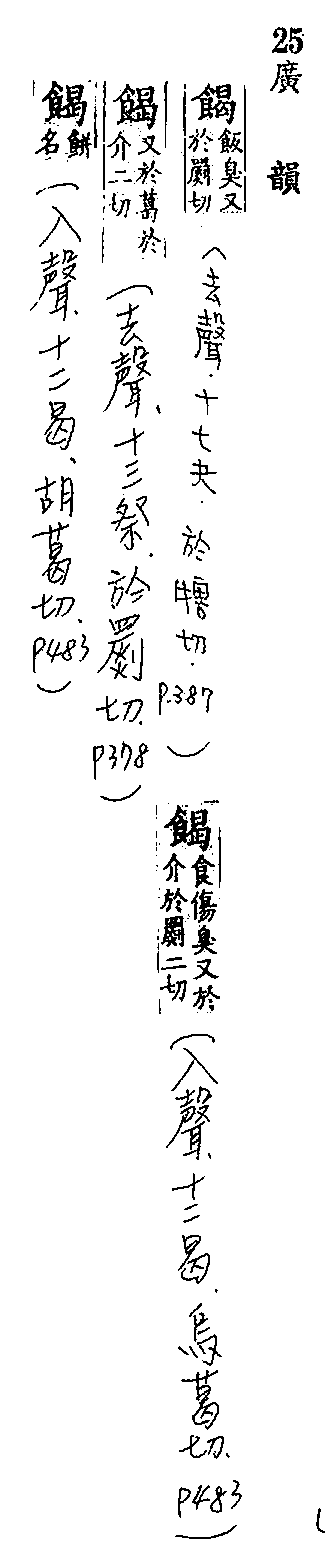 25廣韻
餲飯臭又於罽切(去聲.十七夬.於犗切.P.387)
餲食傷臭又於介於罽二切(入聲.十二曷.烏葛切.P483)
餲又於葛於介二切(去聲.十三祭.於罽切.P378)
餲餅名(入聲.十二曷.胡葛切.P483)